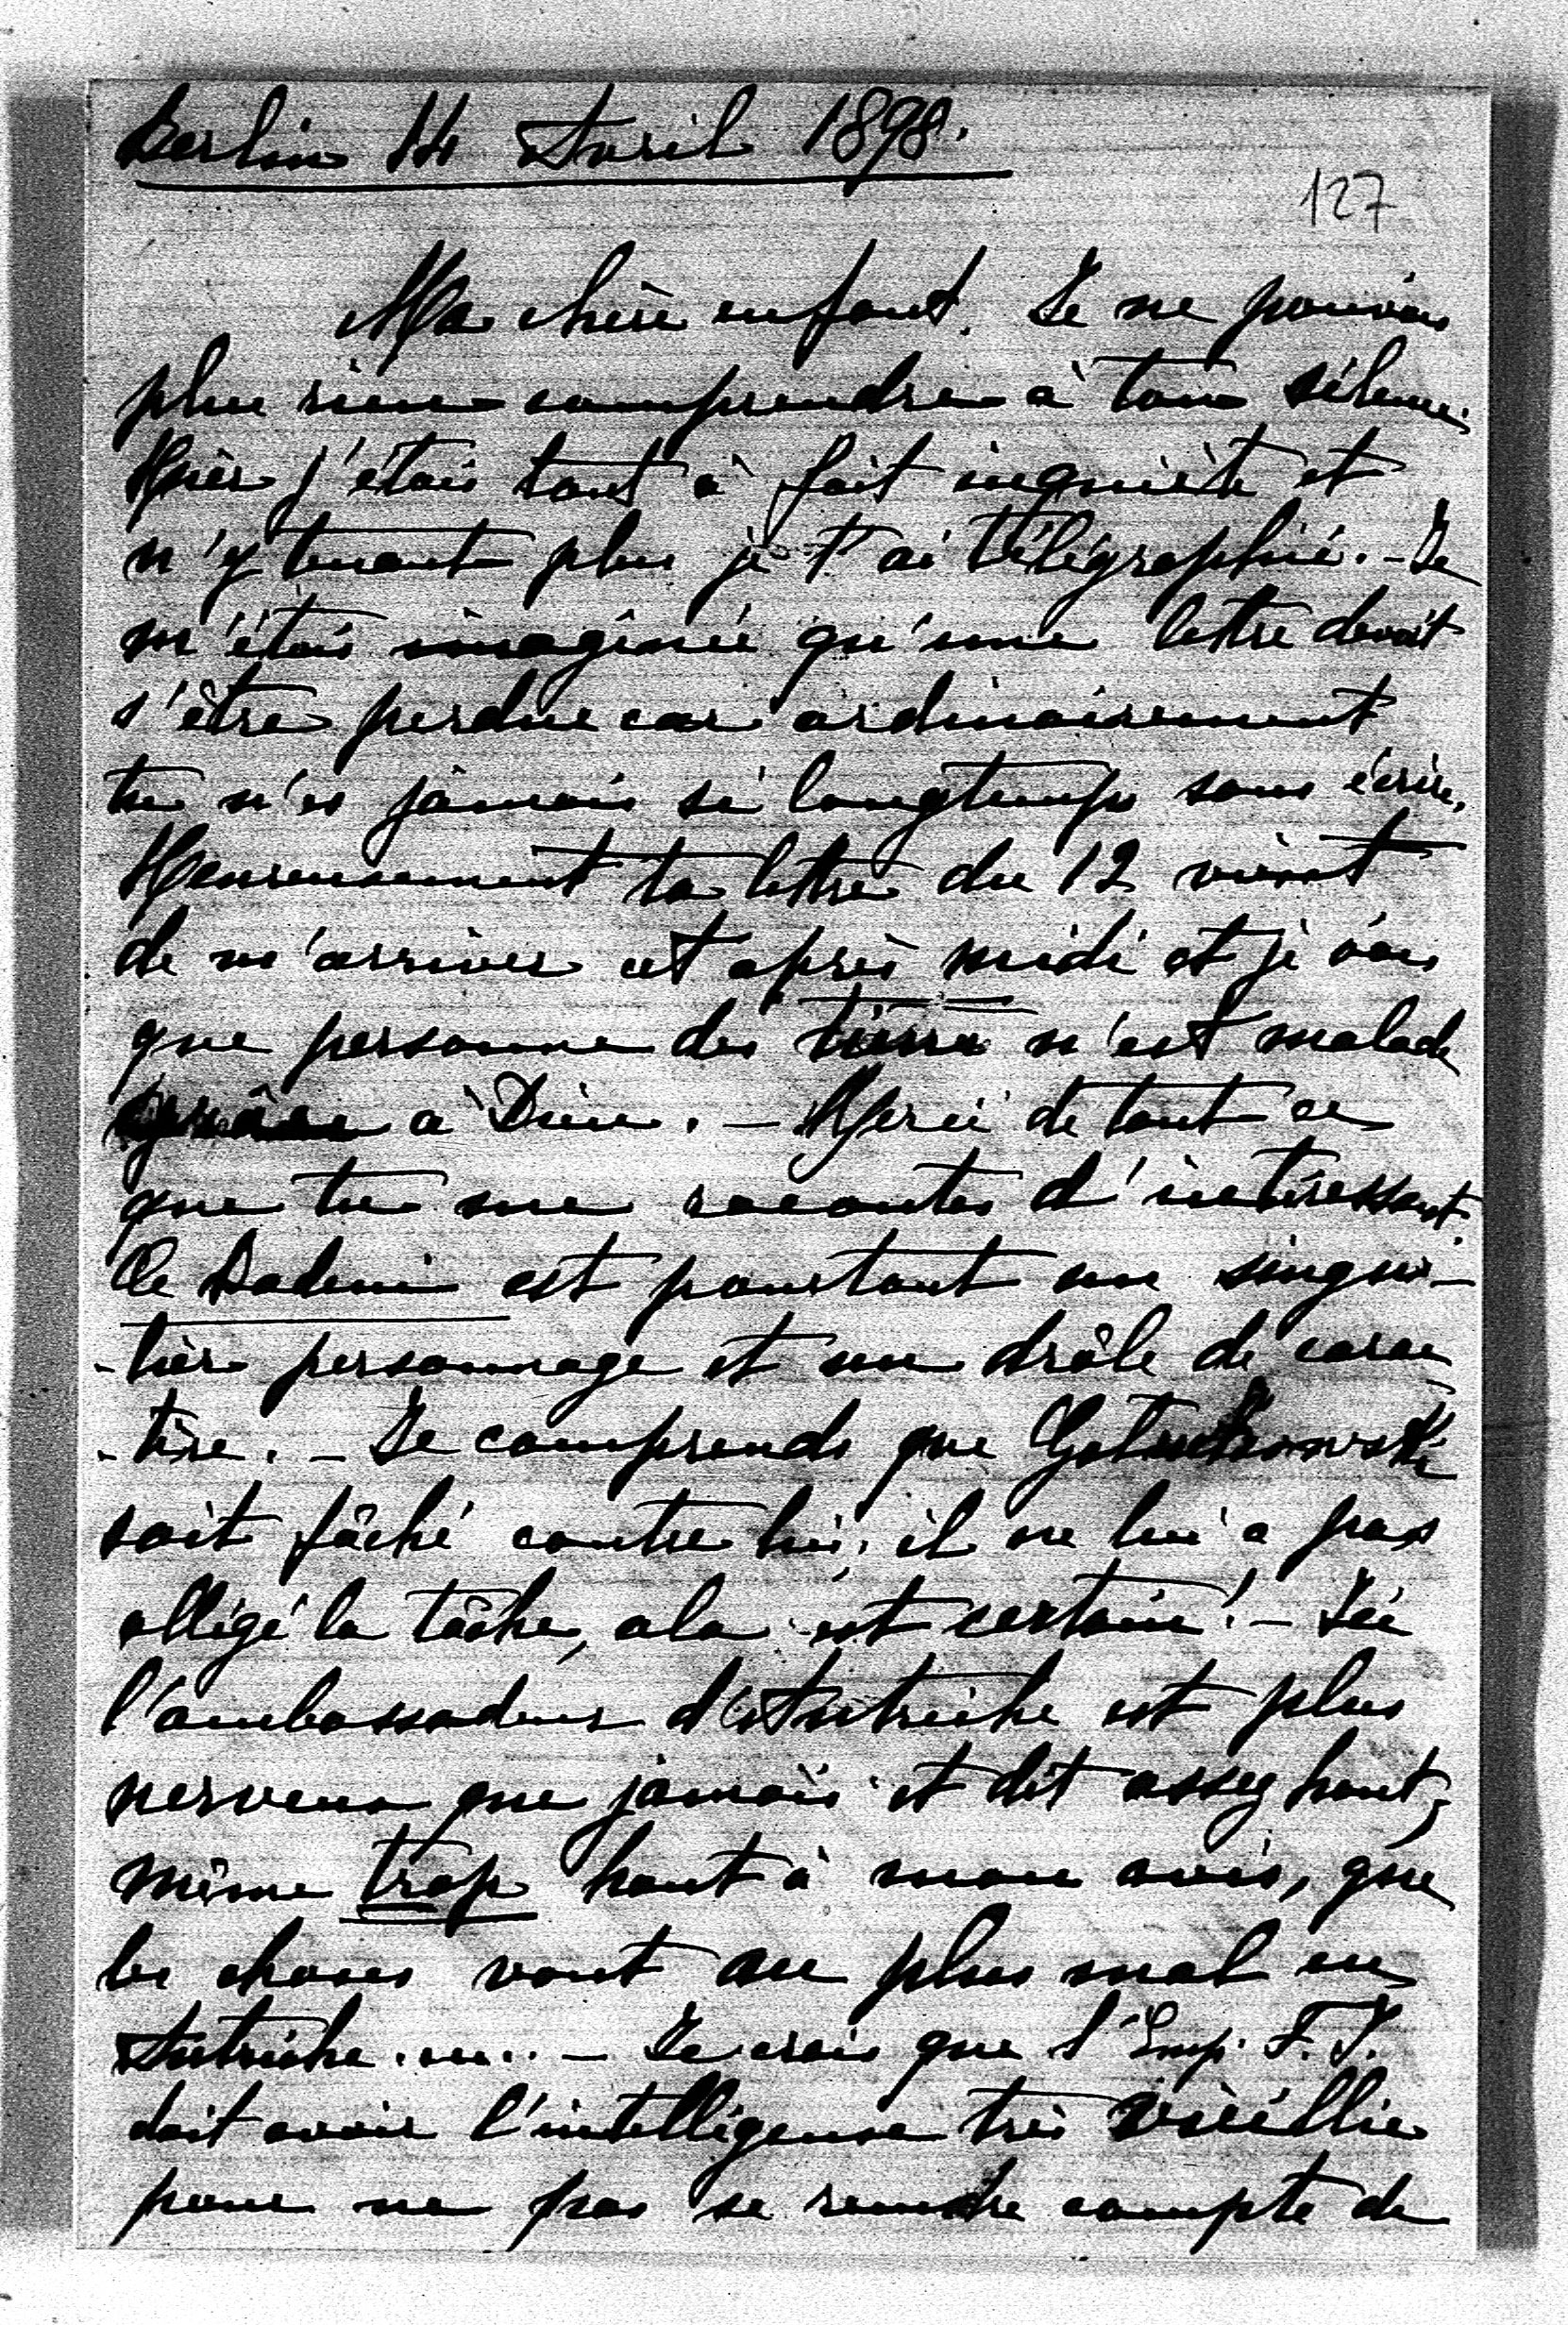 Berlin 14 Avril 1898.
127
Ma chère enfant. Je ne pouvais
plus rien comprendre à ton silence.
Hier j'étais tout à fait inquiète et
n'y tenant plus je t'ai télégraphié. – Je
m'étais imaginée qu'une lettre devait
s'être perdue car ordinairement
tu n'es jamais si longtemps sans écrire.
Heureusement ta lettre du 12 vient
de m'arriver cet après midi et je vois
que personne des tiens n'est malade
grâce à Dieu. – Merci de tout ce
que tu me racontes d'intéressant.
Ce Badeni est pourtant un singu-
-lier personnage et un drôle de carac
-tère. – Je comprends que Goluchowski
soit fâché contre lui, il ne lui a pas
allégé la tâche, cela est certain! – Ici
l'ambassadeur d'Autriche est plus
nerveux que jamais et dit assez haut,
même trop haut à mon avis, que
les choses vont au plus mal en
Autriche..... – Je crois que l'Emp. F. J.
doit avoir l'intelligence très vieillie
pour ne pas se rendre compte de